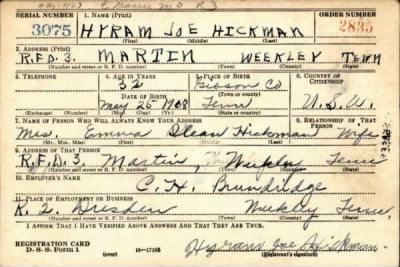 SERIAL NUMBER 1. NAME (Print) ORDER NUMBER
3075 HYRAM JOE HICKMAN 2835
2. ADDRESS (Print)
R.F.D-3. MARTIN WEEKLEY TENN
(Number and street or R. F. D. number) (Town) (County) (State)
3. TELEPHONE 4. AGE IN YEARS 5. PLACE OF BIRTH 6. COUNTRY OF CITIZENSHIP
32 Gibson Co
DATE OF BIRTH
May 25 1908 Tenn U.S.A.
(Exchange) (Number) (Mo.) (Day) (Yr.) (State or country)
7. NAME OF PERSON WHO WILL ALWAYS KNOW YOUR ADDRESS 8. RELATIONSHIP OF THAT PERSON
Mrs. Emma Hickman Wife
(Mr., Mrs., Miss) (First) (Middle) (Last)
9. ADDRESS OF THAT PERSON
R.F.D. 3. Martin, Weekley Tenn
(Number and street or R. F. D. number) (Town) (County) (State)
10. EMPLOYER'S NAME
C. H. Brundridge
11. PLACE OF EMPLOYMENT OR BUSINESS
R. 2 Dresden Weekley Tenn.
(Number and street or R. F. D. number) (Town) (County) (State)
I AFFIRM THAT I HAVE VERIFIED ABOVE ANSWERS AND THAT THEY ARE TRUE.
REGISTRATION CARD
D. S. S. Form 1 (over) 16—17105 Hyram Joe Hickman.